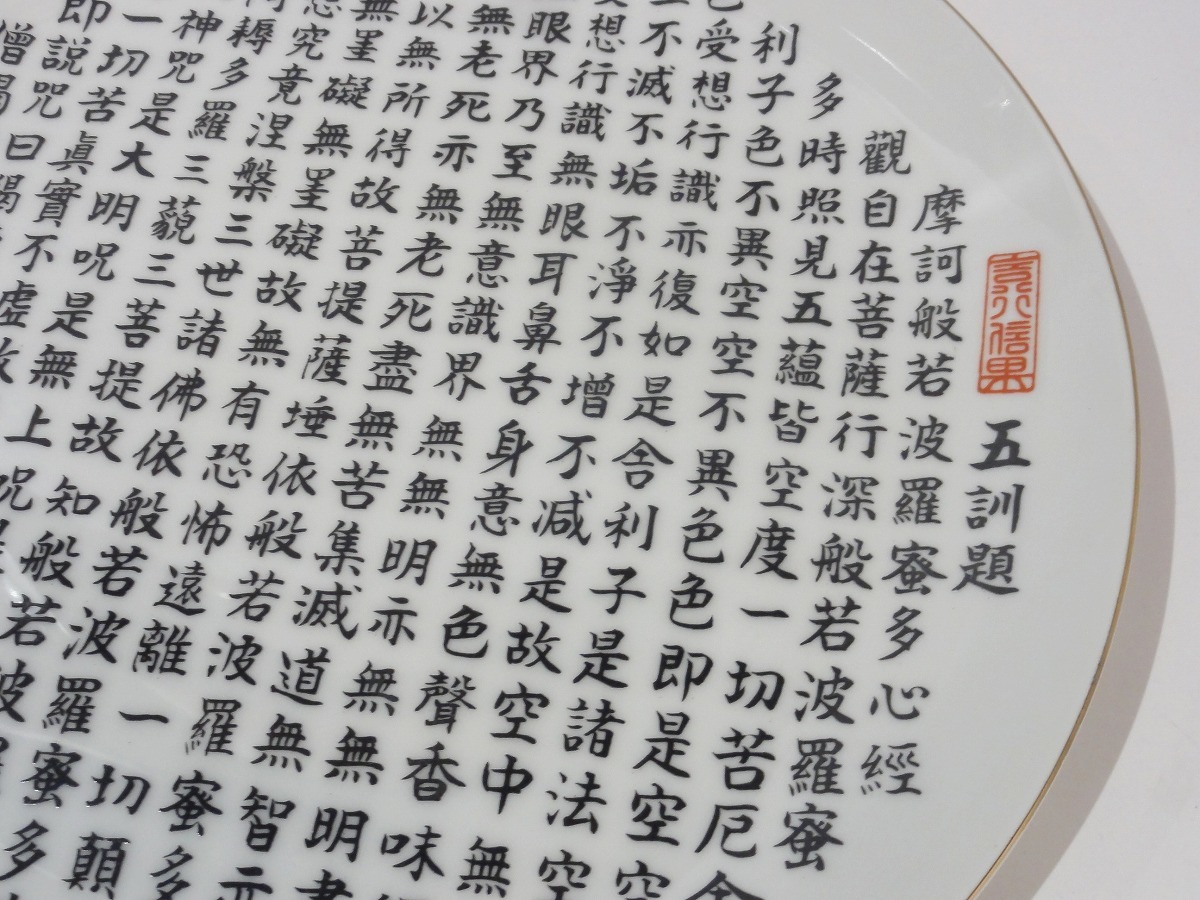 五訓題
摩訶般若波羅蜜多心經
觀自在菩薩行深般若波羅蜜
多時照見五蘊皆空度一切苦厄舍
利子色不異空空不異色色即是空空
色受想行識亦復如是舍利子是諸法空
不滅不垢不淨不增不減是故空中無
受想行識無眼耳鼻舌身意無色聲香味
眼界乃至無意識界無無明亦無無明盡
無老死亦無老死盡無苦集滅道無智亦
以無所得故菩提薩埵依般若波羅蜜多
無罣礙無罣礙故無有恐怖遠離一切顛
究竟涅槃三世諸佛依般若波羅蜜多
耨多羅三藐三菩提故知般若波羅
神咒是大明呪是無上呪
一切苦眞實不虛故
即説呪曰揭
僧揭